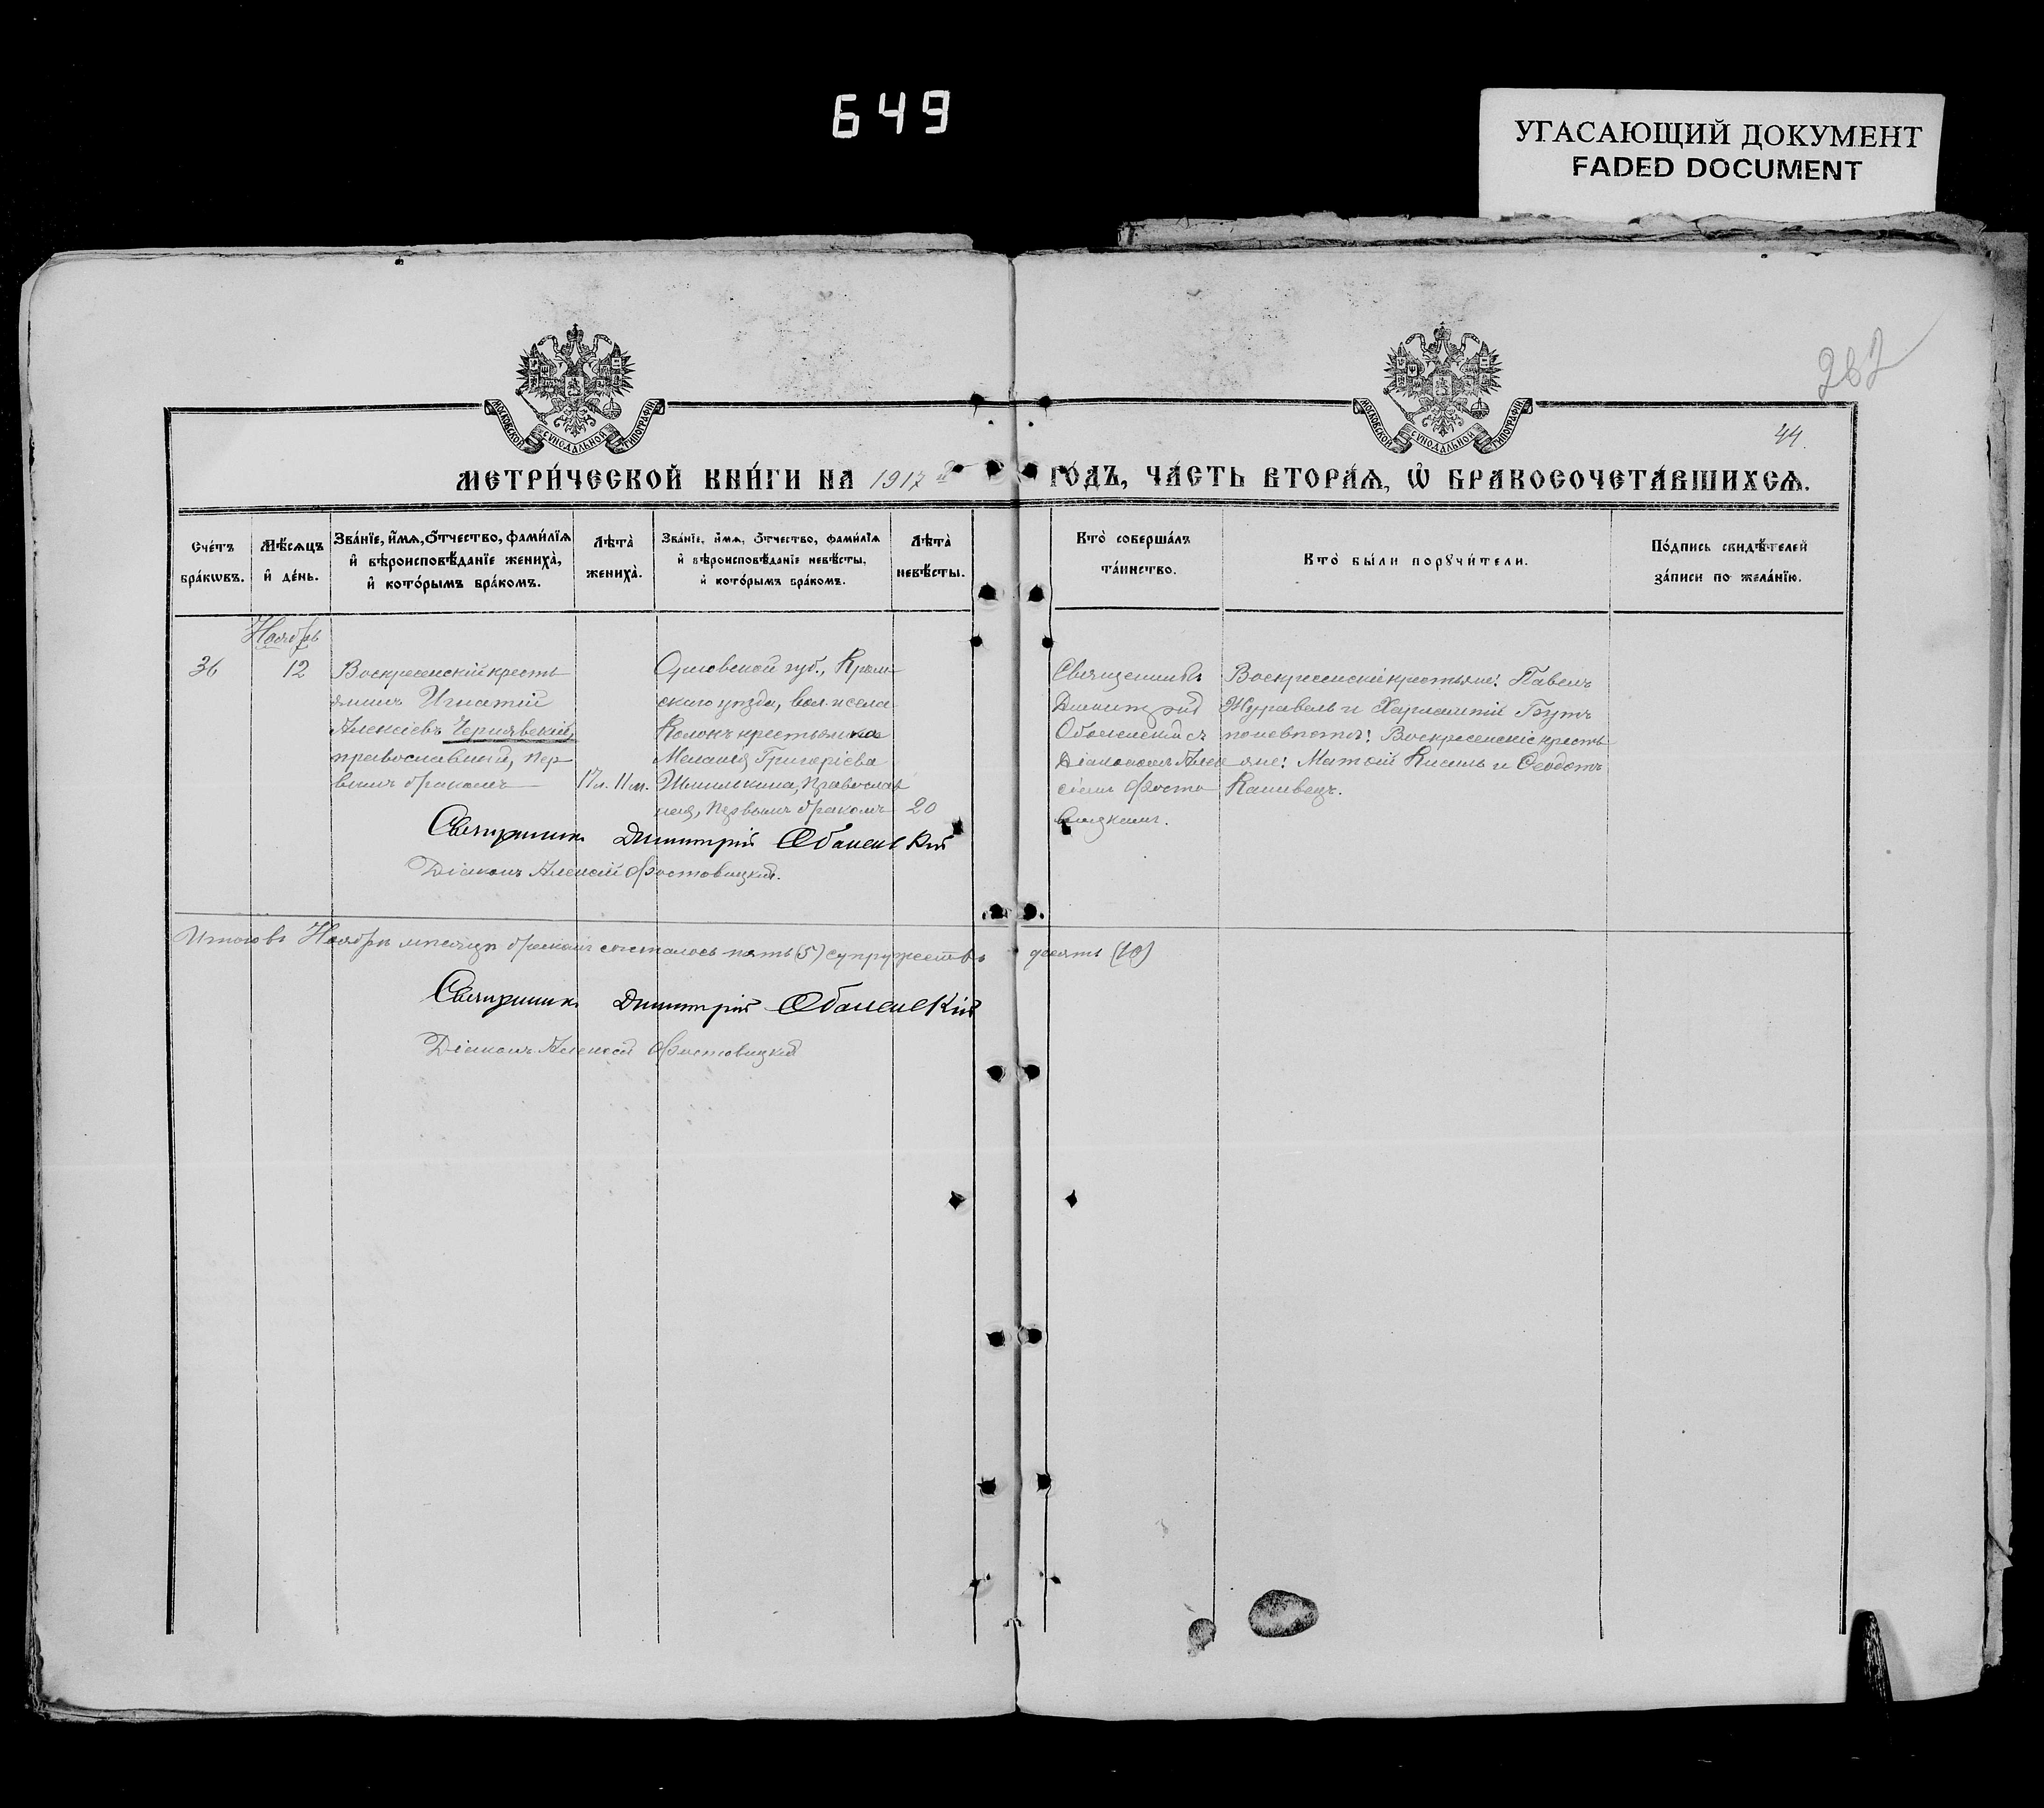 649
УГАСАЮЩИЙ ДОКУМЕНТ
FADED DOCUMENT
262
44.
МОСКОВСКОЙ СѴНОДАЛЬНОЙ ТИПОГРАФІИ
МОСКОВСКОЙ СѴНОДАЛЬНОЙ ТИПОГРАФІИ
МЕТРИ́ЧЕСКОЙ КНИ́ГИ НА 1917 й ГО́ДЪ, ЧА́СТЬ ВТОРА́Ѧ, Ѡ҆ БРАКОСОЧЕТА́ВШИХСѦ.
Сче́тъ бра́кѡвъ.
Мѣ́сѧцъ и҆ де́нь.
Зва́нїе, и҆́мѧ, ѻ҆́тчество, фами́лїѧ и҆ вѣроисповѣ́данїе жениха̀, и҆ кото́рымъ бра́комъ.
Лѣта̀ жениха̀.
Зва́нїе, и҆́мѧ, ѻ҆́тчество, фами́лїѧ и҆ вѣроисповѣ́данїе невѣ́сты, и҆ кото́рымъ бра́комъ.
Лѣта̀ невѣ́сты.
Кто̀ соверша́лъ та́инство.
Кто̀ бы́ли порꙋчи́тели.
По́дпись свидѣ́телей за́писи по жела́нїю.
Ноябрь
36
12
Воскресенскій кресть
янинъ Игнатій
Алексіевъ Чернявскій,
православный, пер
вымъ бракомъ
17 л. 11 м.
Орловской губ., Кром-
скаго уѣзда, вол. и села
крестьянка
Меланія Григоріева
Шмилькина, Православ
ная, первымъ бракомъ
20
Священникъ
Димитрій
Обаленскій съ
Діакономъ Алек
сіемъ Фосто
вицкимъ.
Воскресенскіе крестьяне: Павелъ
Журавель и Харлампій Бутъ
по невѣстѣ: Воскресенскіе кресть
яне: Матѳій Кисиль и Ѳеодотъ
Канивецъ.
Священникъ Димитрій Обаленскій
Діаконъ Алексій Фостовицкій.
Итого въ Ноябрѣ мѣсяцѣ браковъ состоялось пять (5) супружествъ десять (10)
Священникъ Димитрій Обаленскій
Діаконъ Алексій Фостовицкій